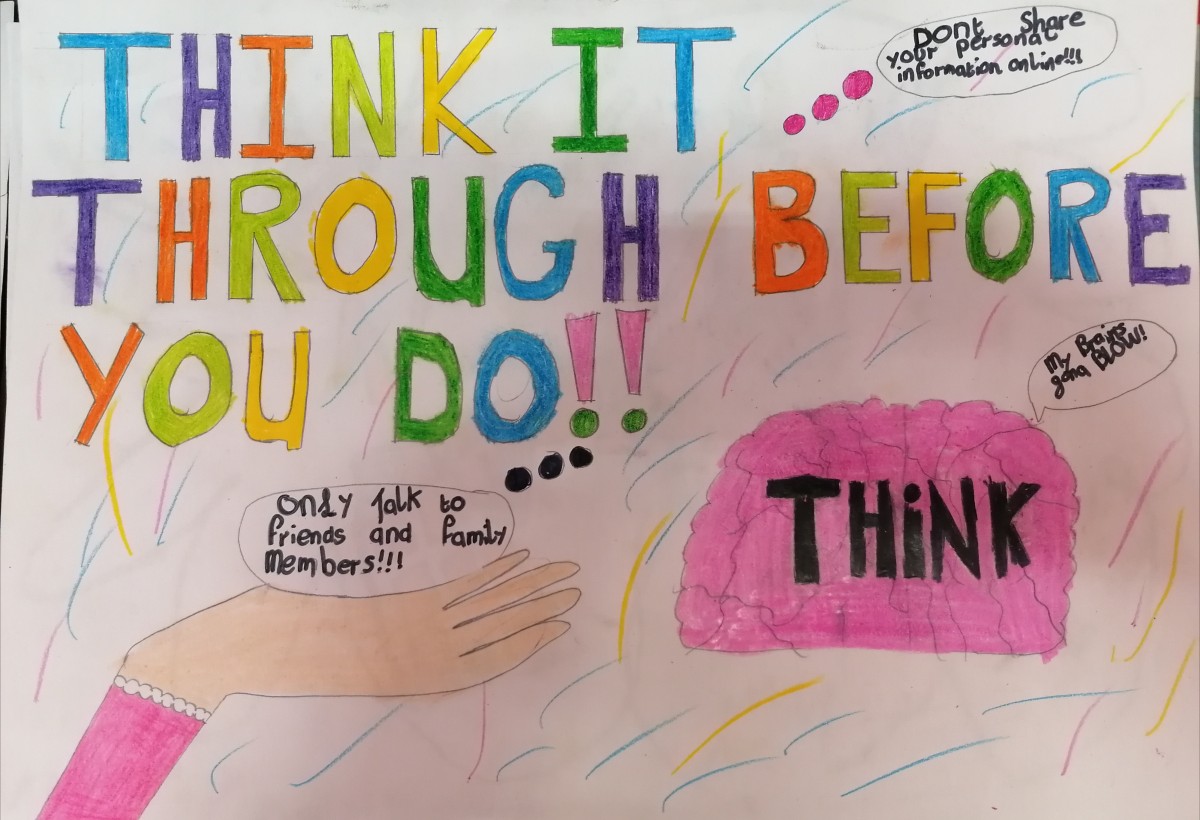 THINK IT
THROUGH BEFORE
YOU DO!!
Dont Share
your personal
information online!!!
My Brains
gona BLOW!
THiNK
ONLY Talk to
friends and family
Members!!!